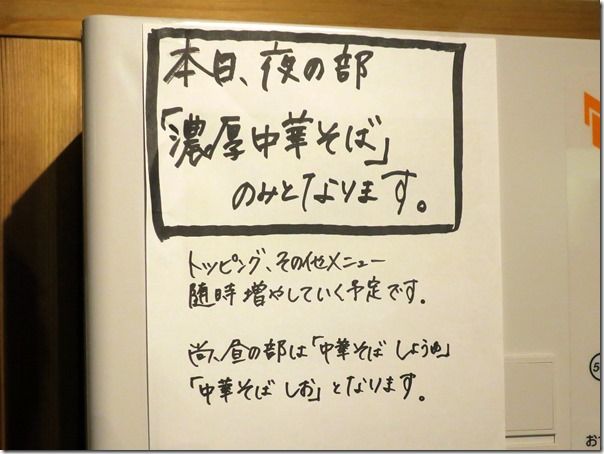 本日、夜の部
「濃厚中華そば」
のみとなります。
トッピング、その他メニュー
随時増やしていく予定です。
尚、昼の部は「中華そば しょうゆ」
「中華そば しお」となります。
5
お